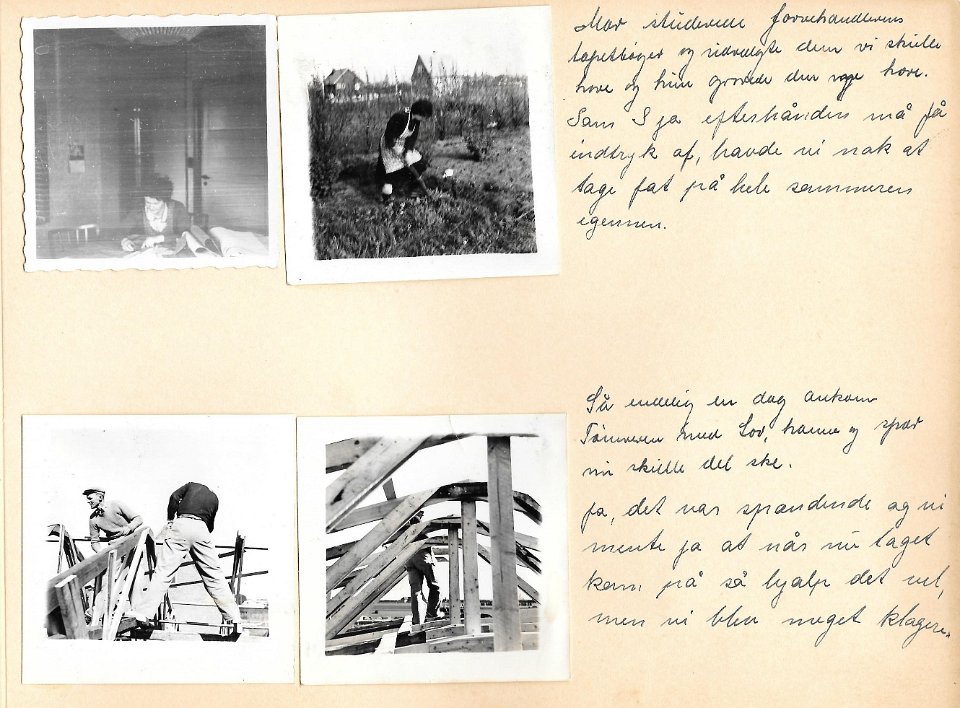 Mor studerede farvehandlerens
tapetbøger og udvalgte dem vi skulle
have og hun gravede den nye have.
Som I jo efterhånden må få
indtryk af, havde vi nok at
tage fat på hele sommeren
igennem.
Så endelig en dag ankom
Tømreren med Sav, hammer og spær
nu skulle det ske.
Ja, det var spændende og vi
mente jo at når nu taget
kom på så hjalp det vel,
men vi blev meget klogere.